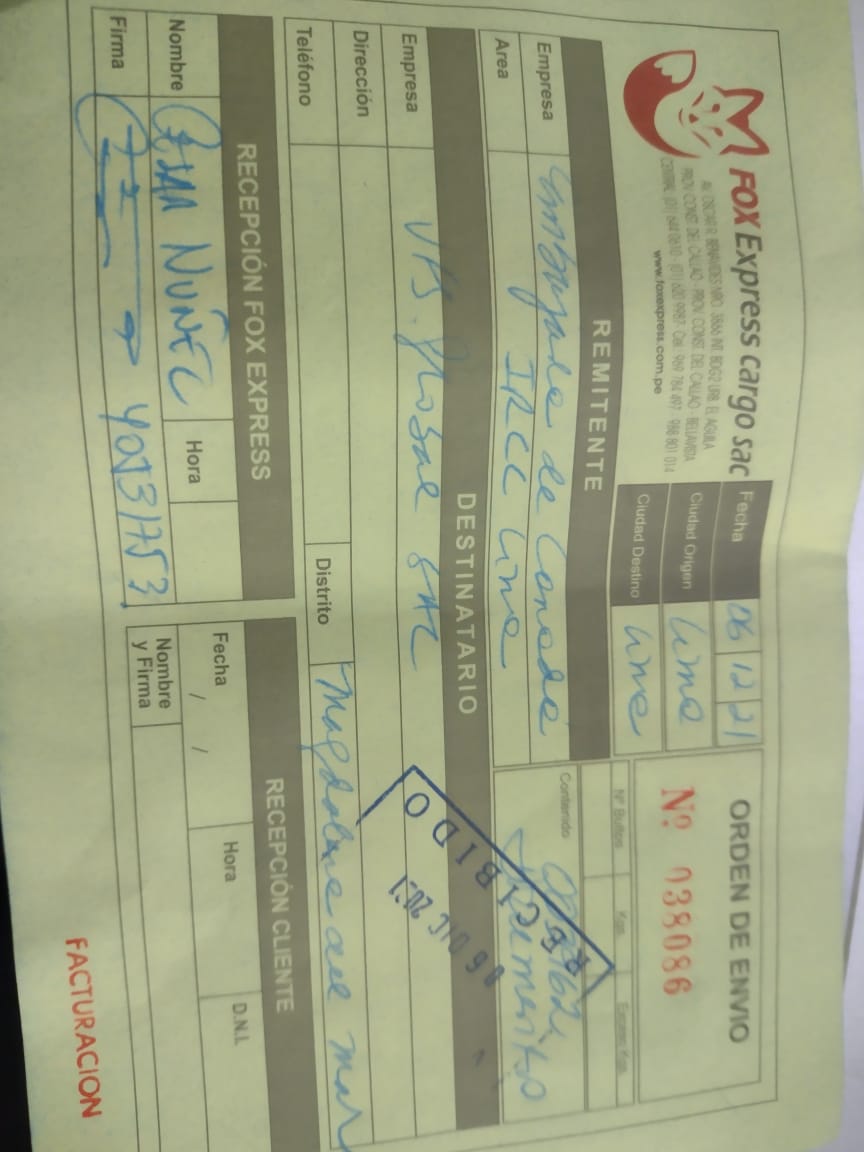 FOX Express cargo sac
AV. OSCAR R. BENAVIDES NRO. 3866 INT. BDG2 URB. EL AGUILA
PROV. CONST. DEL CALLAO - PROV. CONST. DEL CALLAO - BELLAVISTA
CENTRAL (01) 644 0610 - (01) 620 9987 Cel. 969 784 497 - 998 801 014
www.foxexpress.com.pe
Fecha 06 12 21
Ciudad Origen Lima
Ciudad Destino Lima
ORDEN DE ENVIO
Nº 038086
REMITENTE
Nº Bultos Kgs. Exceso Kgs.
Empresa Embajada de Canada
Area IRCC Lima
Contenido
Documentos
DESTINATARIO
Empresa VFS. Global SAC
RECIBIDO
06 DIC 2021
Dirección
Teléfono
Distrito Magdalena del Mar
RECEPCIÓN FOX EXPRESS
Nombre NUÑEZ
Hora
Firma 40531753
RECEPCIÓN CLIENTE
Fecha / / Hora D.N.I.
Nombre
y Firma
FACTURACION